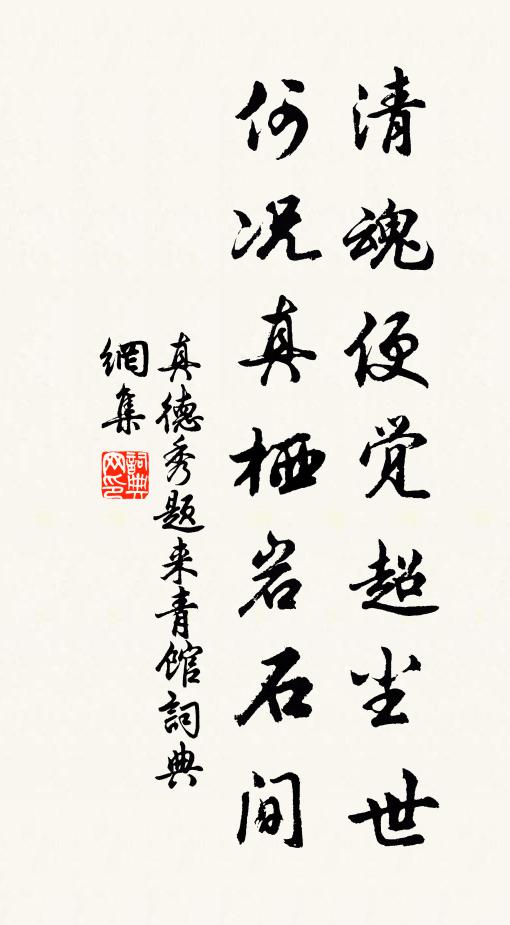 清魂便觉超尘世
何况真栖岩石间
真德秀题来青館詞典
網集
詞典网印